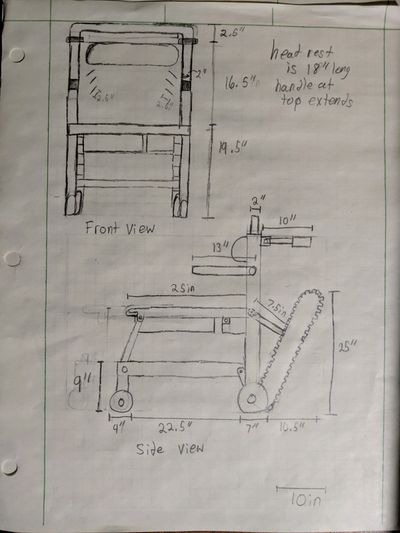 2.5"
head rest
is 18" long
handle at
top extends
16.5"
2"
2.5"
2.5"
19.5"
Front View
2"
10"
13"
25in
7.5in
25"
9"
4"
22.5"
7"
10.5"
Side View
10in